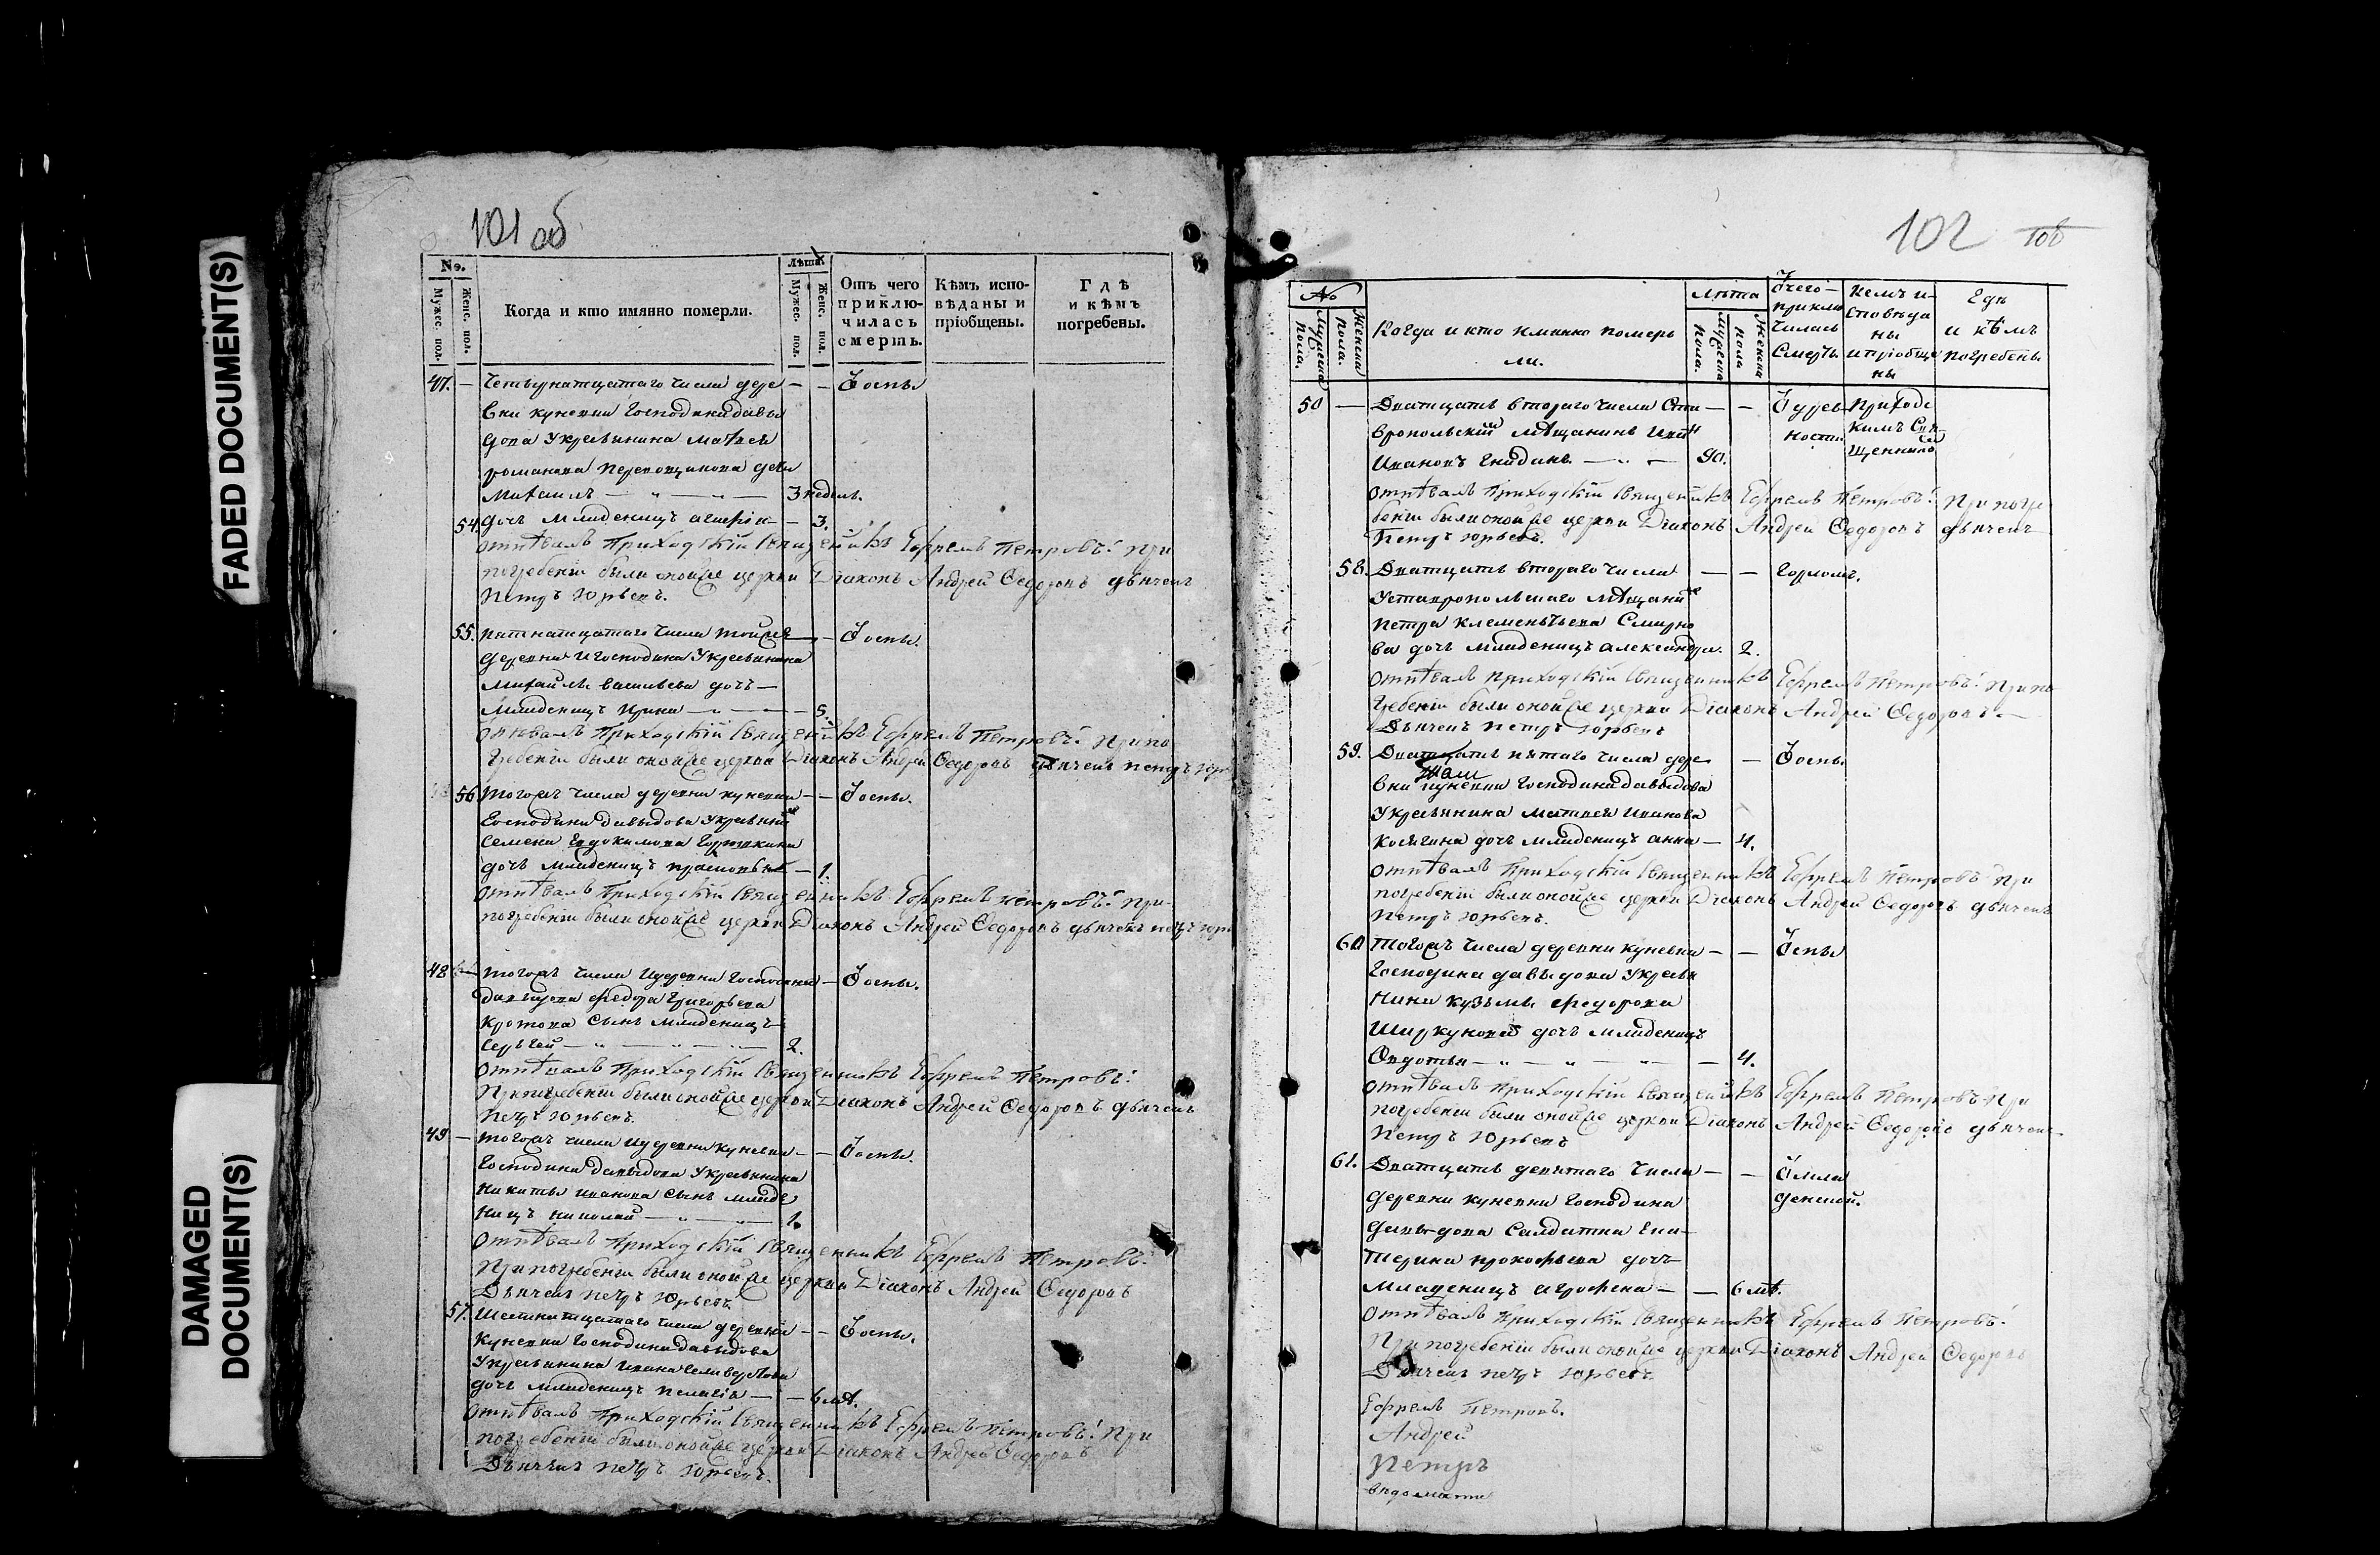 FADED DOCUMENT(S)
DAMAGED
DOCUMENT(S)
101 об
№.
Мужес. пол.
Женс. пол.
Когда и кто имянно померли.
Лѣта.
Мужес. пол.
Женс. пол.
Отъ чего
приклю-
чилась
смерть.
Кѣмъ испо-
вѣданы и
пріобщены.
Гдѣ
и кѣмъ
погребены.
47. — Четырнатцатаго числа дере — — Ѿ оспы
вни куневки Господина давы
дова Укрестьянина Матвея
романова
Михаилъ — „ — „ — 3 недель.
54. дочь младеницъ — 3.
отпѣвалъ Приходскій Священникъ Ефремъ Петровъ: При
погребеніи были оной же церкви Діаконъ Андрей Ѳедоровъ дьячекъ
Петръ Юрьевъ.
55. пятнатцатаго числа тойже — — Ѿ оспы.
деревни и господина Укрестьянина
Михайлы васильева дочь —
Младеницъ Ирина — „ — 5.
Отпѣвалъ Приходскій Священникъ Ефремъ Петровъ: При по
гребеніи были оной же церкви Діаконъ Андрей Ѳедоровъ дьячекъ петръ
56. Тогожъ числа деревни куневки — — Ѿ оспы.
Господина давыдова Укрестьянина
Семена Евдокимова
дочь младеницъ — 1.
отпѣвалъ Приходскій Священникъ Ефремъ Петровъ: При-
погребеніи были оной же церкви Діаконъ Андрей Ѳедоровъ дьячекъ петръ
48 — Тогожъ числа и деревни Господина — Ѿ оспы.
давыдова Федора Григорьева
Кротова Сынъ Младеницъ
Сергей — „ — „ — 2.
Отпѣвалъ Приходскій Священникъ Ефремъ Петровъ:
При погребеніи были оной же церкви Діаконъ Андрей Ѳедоровъ дьячекъ
Петръ Юрьевъ.
49 — Тогожъ числа и деревни куневки — — Ѿ оспы.
Господина давыдова Укрестьянина
Никиты иванова Сынъ младе
ницъ николай — „ — 1.
Отпѣвалъ Приходскій Священникъ Ефремъ Петровъ:
При погребеніи были оной же церкви Діаконъ Андрей Ѳедоровъ
Дьячекъ петръ Юрьевъ.
57. Шестнатцатаго числа деревни — — Ѿ оспы.
Куневки Господина давыдова
Укрестьянина ивана
дочь младеницъ пелагія — — 6 мѣ.
Отпѣвалъ Приходскій Священникъ Ефремъ Петровъ: При
погребеніи были оной же церкви Діаконъ Андрей Ѳедоровъ
Дьячекъ петръ Юрьевъ.
102 106
№
Мужеска пола.
Женска пола.
Когда и кто имянно померь
ли.
Лѣта
Мужеска пола.
Женска пола
Ѿ чего-
приклю
чилась
Смерть
Кемъ и-
споведа
ны
и пріобще
ны
Гдѣ
и кѣмъ
погребены
50 — Дватцать втораго числа Ста — — Ѿ дрях- Приходс
вропольскій Мѣщанинъ ности кимъ Свя
Ивановъ — „ — 90. щенникомъ
отпѣвалъ Приходскій Священникъ Ефремъ Петровъ: При погре
беніи были оной же церкви Діаконъ Андрей Ѳедоровъ дьячекъ
Петръ Юрьевъ.
58. Дватцать втораго числа — — Горломъ.
Уставропольскаго Мѣщанина
Петра Клементьева Смирно
ва дочь младеницъ александра. 2.
Отпѣвалъ приходскій Священникъ Ефремъ Петровъ: При по
гребеніи были оной же церкви Діаконъ Андрей Ѳедоровъ. —
Дьячекъ Петръ Юрьевъ
59. Дватцать пятаго числа дере — Ѿ оспы
вни куневки Господина давыдова
Укрестьянина Матвея Иванова
Косягина дочь младеницъ анна — 4.
отпѣвалъ Приходскій Священникъ Ефремъ Петровъ При
погребеніи были оной же церкви Діаконъ Андрей Ѳедоровъ дьячекъ
Петръ Юрьевъ.
60 Тогожъ числа деревни куневки — — Ѿ спы
Господина давыдова Укрестья
нина кузьмы Федорова
Ширкунова дочь младеницъ
Овдотья — „ — „ — „ — 4.
отпѣвалъ Приходскій Священникъ Ефремъ Петровъ При
погребеніи были оной же церкви Діаконъ Андрей Ѳедоровъ дьячекъ
Петръ Юрьевъ
61. Дватцать девятаго числа — — Ѿ мла
деревни куневки Господина денской.
давыдова Салдатки Ека-
терины прокофьева дочь
Младеницъ агрофена — — 6 мѣ.
отпѣвалъ Приходскій Священникъ Ефремъ Петровъ:
При погребеніи были оной же церкви Діаконъ Андрей Ѳедоровъ
Дьячекъ петръ Юрьевъ.
Ефремъ Петровъ.
Андрей
Петръ